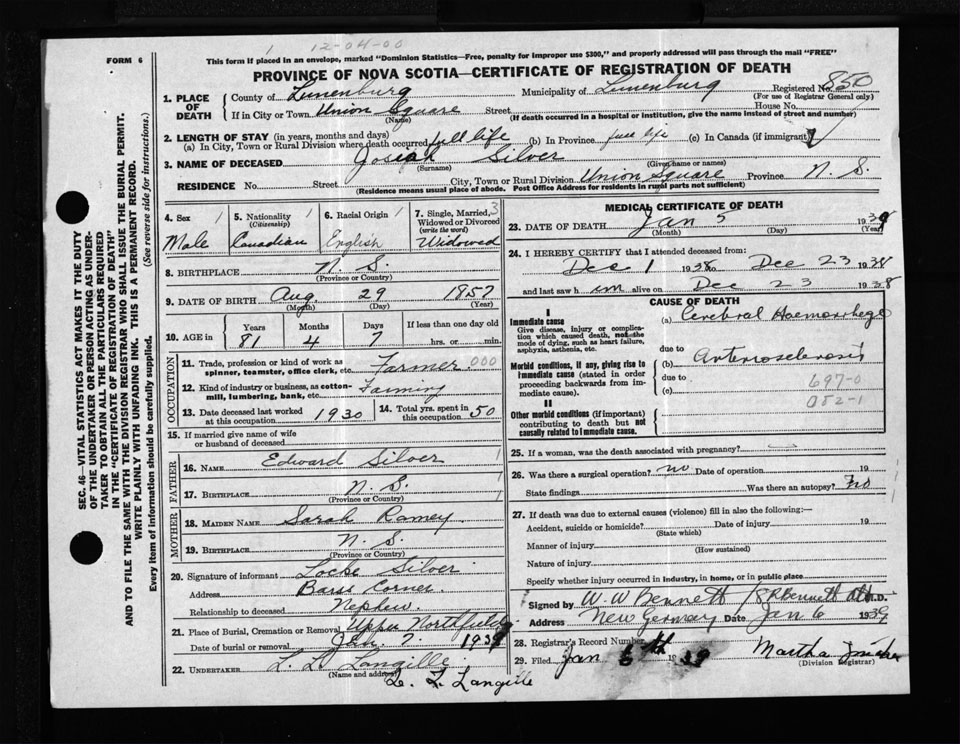 1 12-04-00
FORM 6
This form if placed in an envelope, marked "Dominion Statistics—Free, penalty for improper use $300," and properly addressed will pass through the mail "FREE"
PROVINCE OF NOVA SCOTIA—CERTIFICATE OF REGISTRATION OF DEATH
SEC. 46—VITAL STATISTICS ACT MAKES IT THE DUTY
OF THE UNDERTAKER OR PERSON ACTING AS UNDER-
TAKER TO OBTAIN ALL THE PARTICULARS REQUIRED
IN THE "CERTIFICATE OF REGISTRATION OF DEATH"
AND TO FILE THE SAME WITH THE DIVISION REGISTRAR WHO SHALL ISSUE THE BURIAL PERMIT.
WRITE PLAINLY WITH UNFADING INK. THIS IS A PERMANENT RECORD.
Every item of information should be carefully supplied. (See reverse side for instructions.)
1. PLACE OF DEATH County of Lunenburg Municipality of Lunenburg Registered No. 850
(For use of Registrar General only)
If in City or Town Union Square Street House No.
(Name) (If death occurred in a hospital or institution, give the name instead of street and number)
2. LENGTH OF STAY (in years, months and days)
(a) In City, Town or Rural Division where death occurred full life (b) In Province full life (c) In Canada (if immigrant)
3. NAME OF DECEASED Josiah Silver
(Surname) (Given name or names)
RESIDENCE No. Street City, Town or Rural Division Union Square Province N. S.
(Residence means usual place of abode. Post Office Address for residents in rural parts not sufficient)
4. Sex 1 5. Nationality 1 (Citizenship) 6. Racial Origin 1 7. Single, Married, Widowed or Divorced (write the word) 3
Male Canadian English Widowed
8. BIRTHPLACE N. S.
(Province or Country)
9. DATE OF BIRTH Aug 29 1857
(Month) (Day) (Year)
10. AGE in Years Months Days If less than one day old
81 4 7 hrs. or min.
OCCUPATION
11. Trade, profession or kind of work as spinner, teamster, office clerk, etc. Farmer 000
12. Kind of industry or business, as cotton-mill, lumbering, bank, etc. Farming
13. Date deceased last worked at this occupation 1930 14. Total yrs. spent in this occupation 50
15. If married give name of wife or husband of deceased
FATHER
16. NAME Edward Silver
17. BIRTHPLACE N. S.
(Province or Country)
MOTHER
18. MAIDEN NAME Sarah Ramey
19. BIRTHPLACE N. S.
(Province or Country)
20. Signature of informant Locke Silver
Address Barss Corner
Relationship to deceased Nephew
21. Place of Burial, Cremation or Removal Upper Northfield
Date of burial or removal Jan 7. 1939
22. UNDERTAKER L. L. Langille
(Name and address)
L. L. Langille
MEDICAL CERTIFICATE OF DEATH
23. DATE OF DEATH Jan 5 1939
(Month) (Day) (Year)
24. I HEREBY CERTIFY that I attended deceased from:
Dec 1 1938 to Dec 23 1938
and last saw him alive on Dec 23 1938
CAUSE OF DEATH
I
Immediate cause
Give disease, injury or complication which caused death, not the mode of dying, such as heart failure, asphyxia, asthenia, etc.
(a) Cerebral Haemorrhage
due to
Morbid conditions, if any, giving rise to immediate cause (stated in order proceeding backwards from immediate cause).
(b) Arteriosclerosis
due to
(c)
697-0
082-1
II
Other morbid conditions (if important) contributing to death but not causally related to immediate cause.
25. If a woman, was the death associated with pregnancy?
26. Was there a surgical operation? no Date of operation 19
State findings Was there an autopsy? no
27. If death was due to external causes (violence) fill in also the following:—
Accident, suicide or homicide? Date of injury 19
(State which)
Manner of injury
(How sustained)
Nature of injury
Specify whether injury occurred in industry, in home, or in public place
Signed by W. W Bennett M.D.
Address New Germany Date Jan 6 1939
28. Registrar's Record Number
29. Filed Jan 19 39 Martha
(Division Registrar)